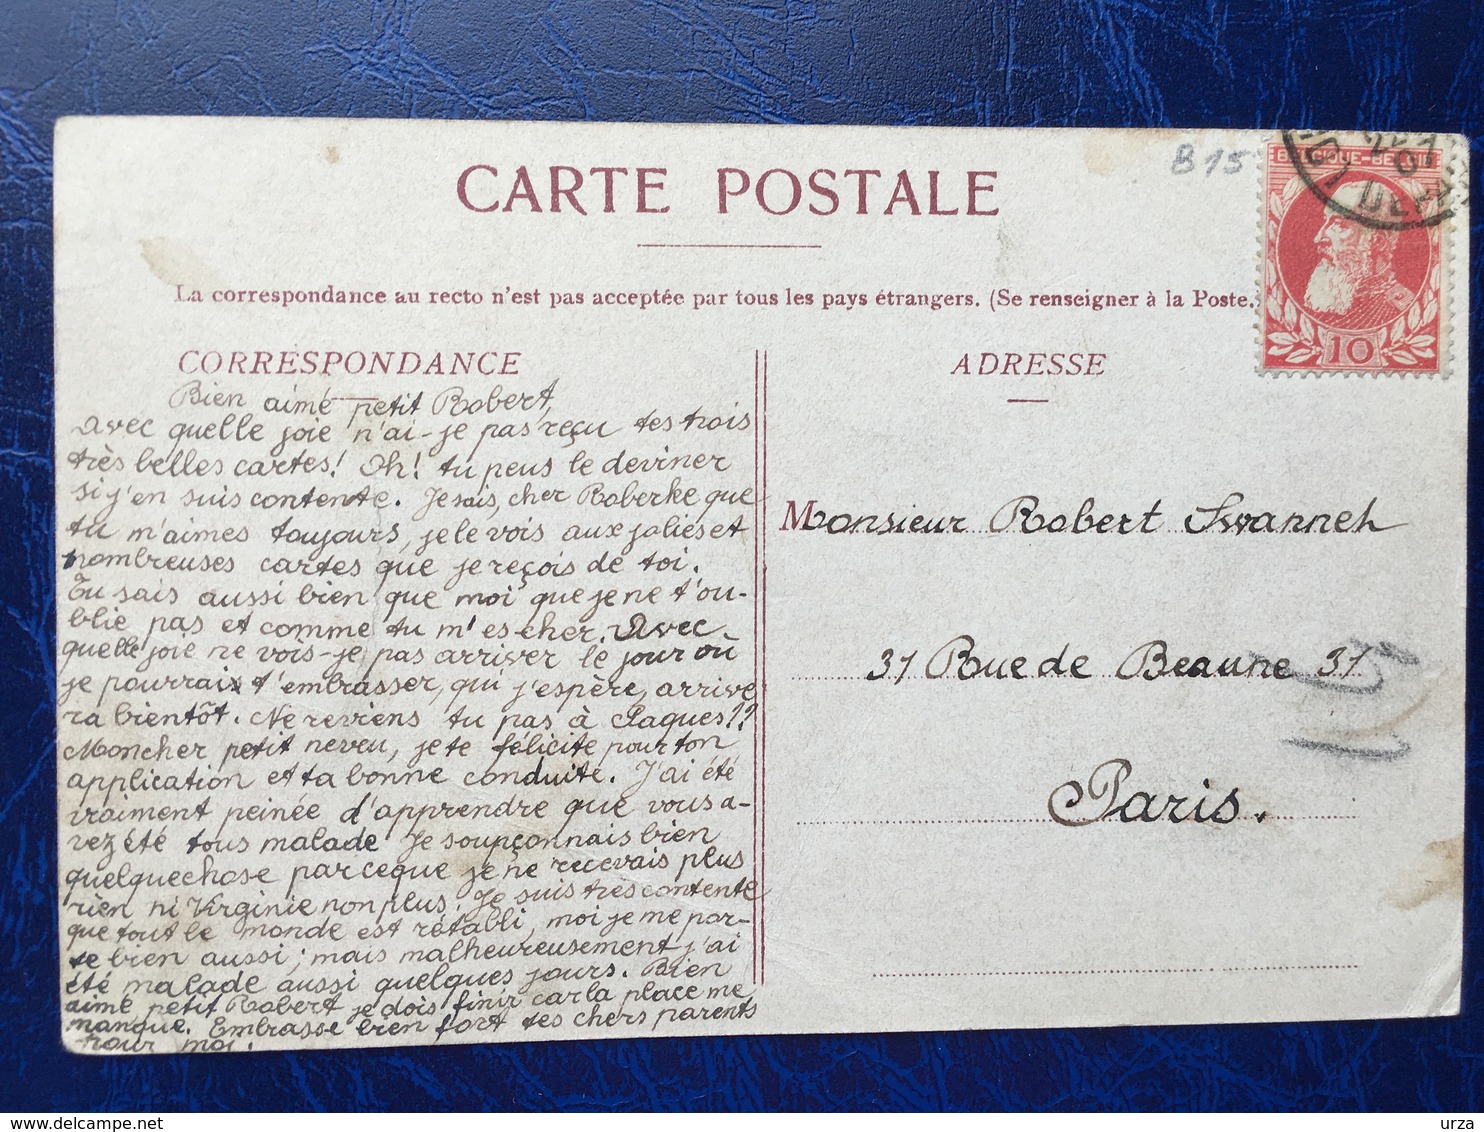 CARTE POSTALE
B15
BELGIQUE-BELGIË
10
La correspondance au recto n'est pas acceptée par tous les pays étrangers. (Se renseigner à la Poste.
CORRESPONDANCE
Bien aimé petit Robert,
Avec quelle joie n'ai-je pas reçu tes trois
très belles cartes! Oh! tu peus le deviner
si j'en suis contente. Je sais, cher Roberke que
tu m'aimes toujours, je le vois aux jolies et
nombreuses cartes que je reçois de toi.
Tu sais aussi bien que moi que je ne t'ou-
blie pas et comme tu m'es cher. Avec
quelle joie ne vois-je pas arriver le jour où
je pourrais t'embrasser, qui j'espère, arrive
ra bientôt. Ne reviens tu pas à Paques??
Mon cher petit neveu, je te félicite pour ton
application et ta bonne conduite. J'ai été
vraiment peinée d'apprendre que vous a-
vez été tous malade Je soupçonnais bien
quelque chose parceque je ne recevais plus
rien ni Virginie non plus. Je suis très contente
que tout le monde est rétabli, moi je me por-
te bien aussi; mais malheureusement j'ai
été malade aussi quelques jours. Bien
aimé petit Robert je dois finir car la place me
manque. Embrasse bien fort tes chers parents
pour moi.
ADRESSE
Monsieur Robert Swanneh
31 Rue de Beaune 31
Paris.
urza